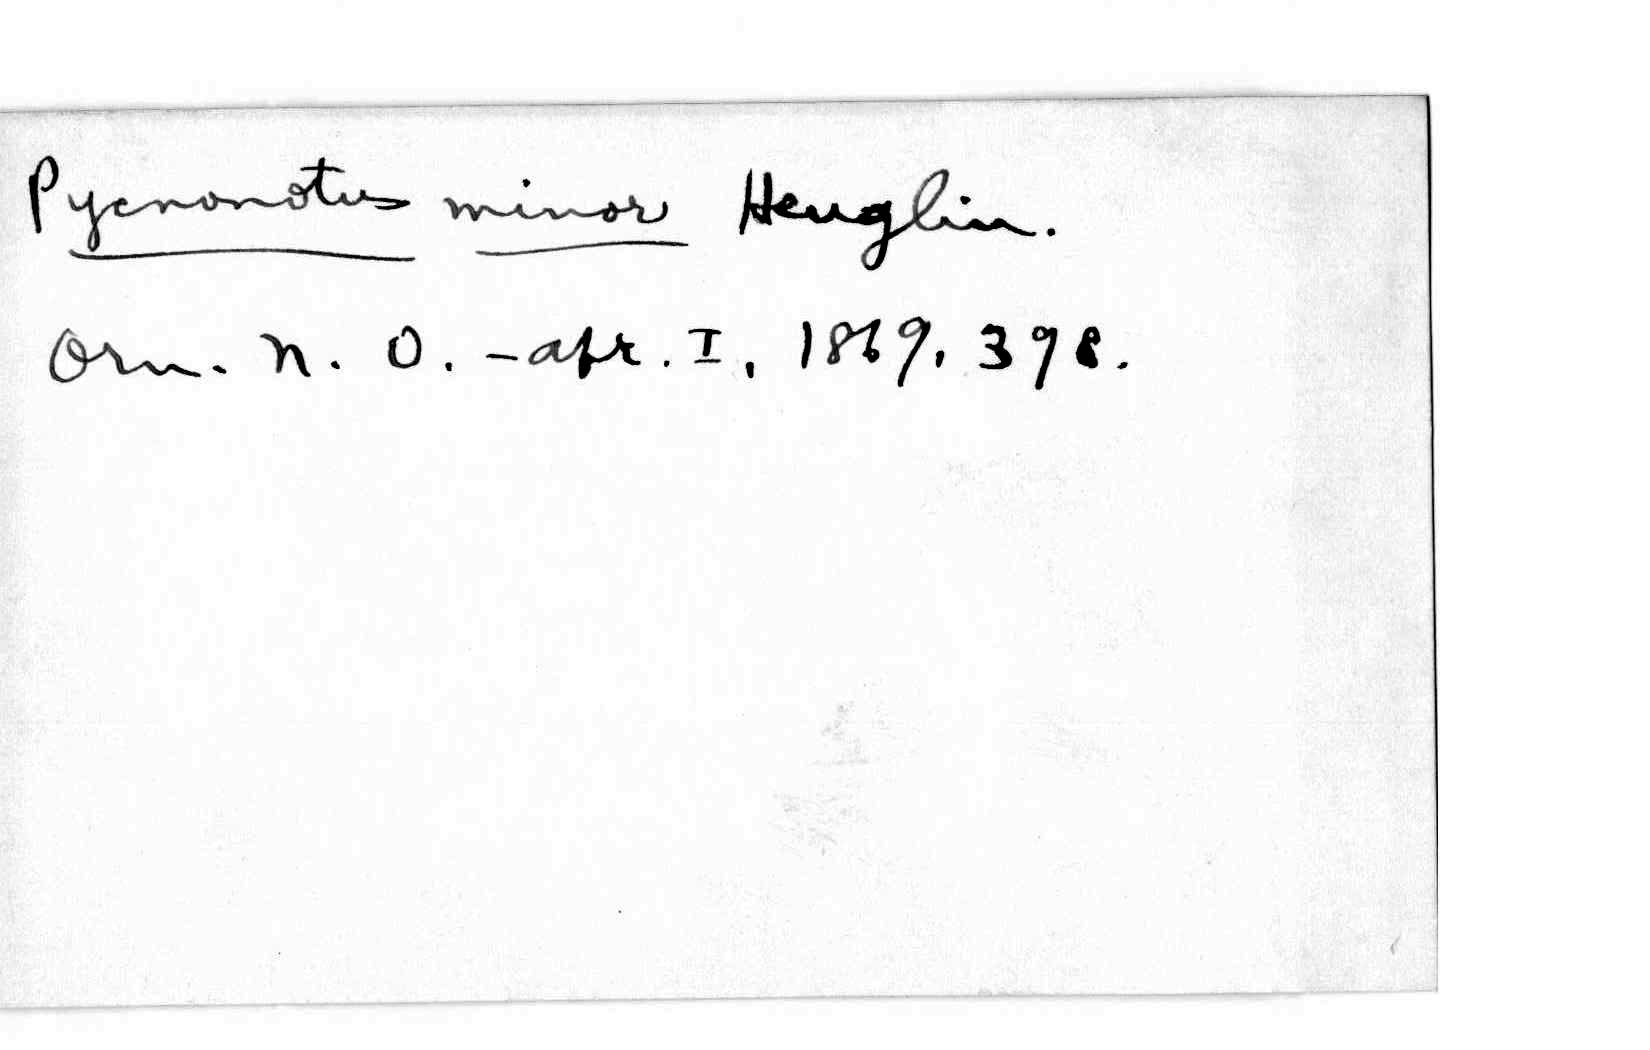 Pycnonotus minor Heuglin.
Orn. N. O. - afr. I, 1869, 398.